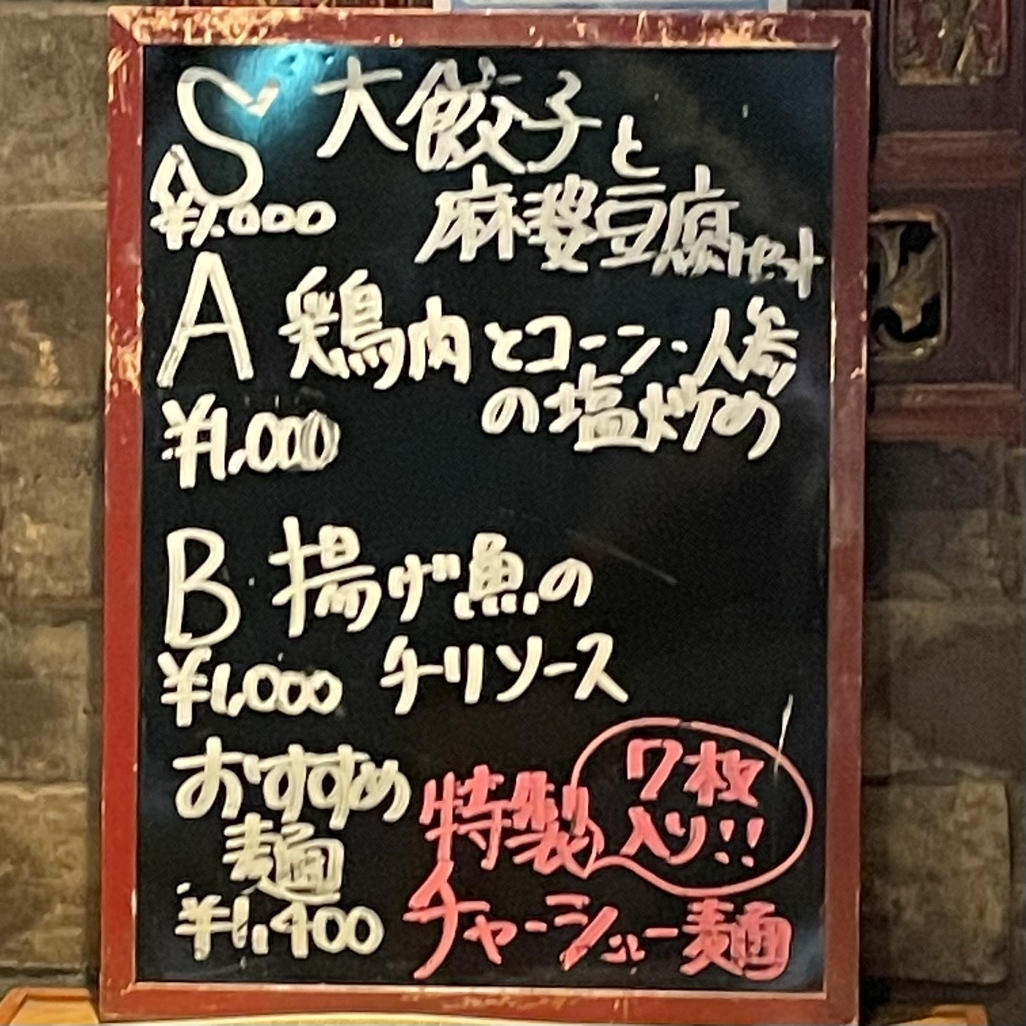 S 大餃子と
¥1,000 麻婆豆腐セット
A 鶏肉とコーン・人参
の塩炒め
¥1,000
B 揚げ魚の
¥1,000 チリソース
おすすめ
麺
¥1,400
特製
7枚
入り!!
チャーシュー麺